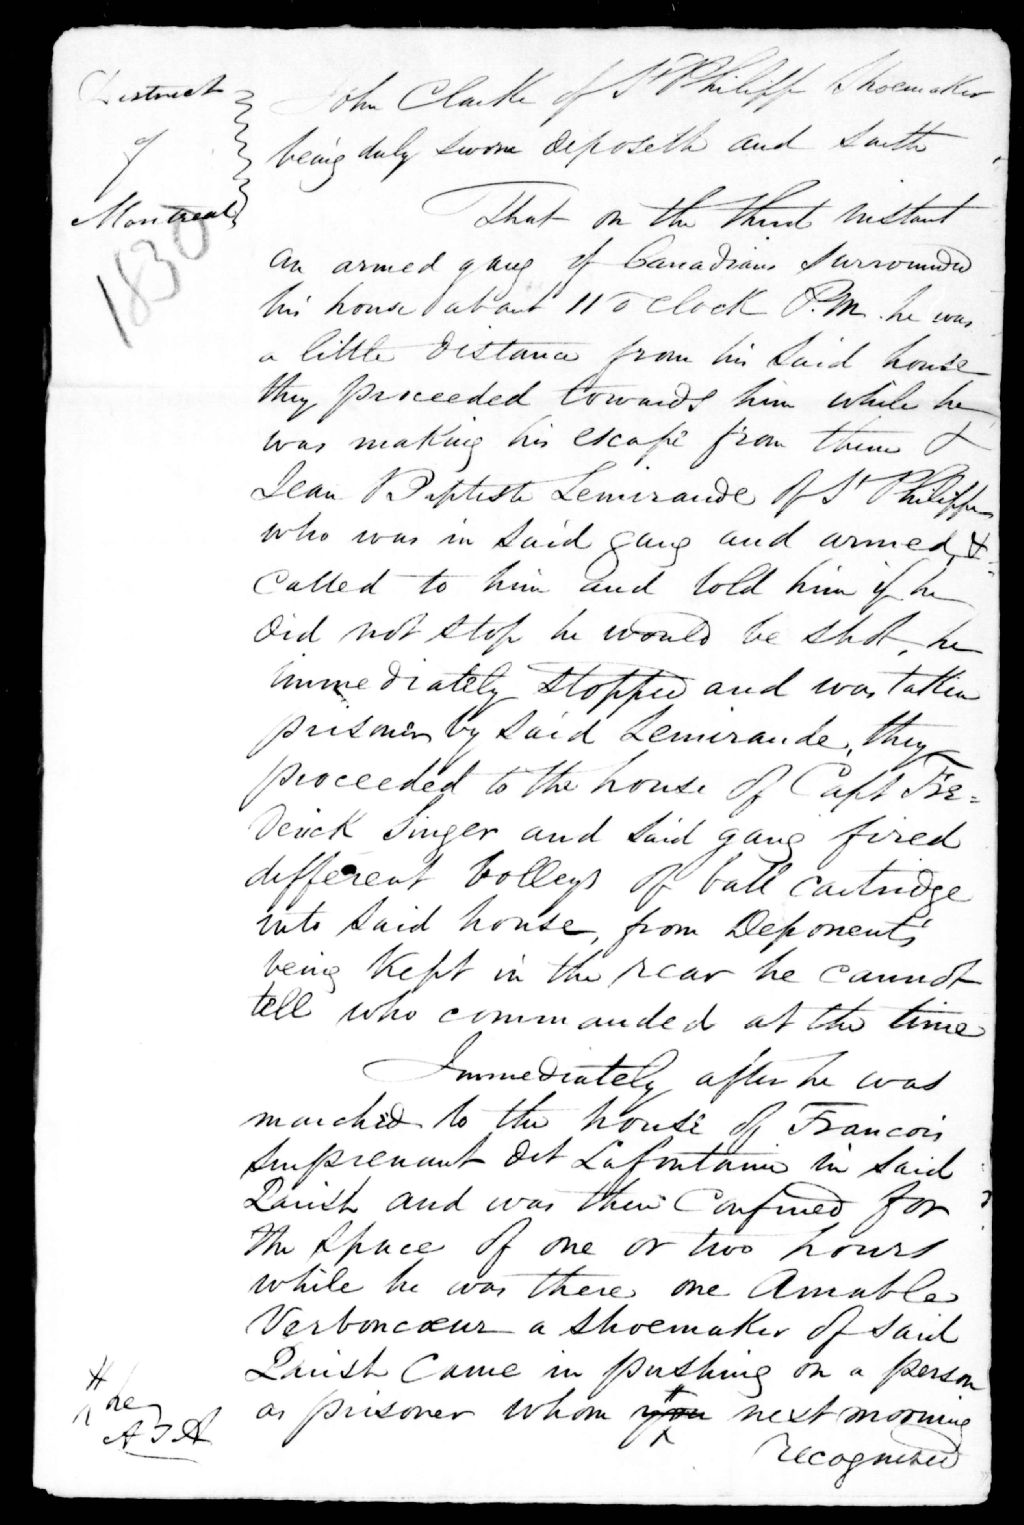 District
of
Montreal
1830
John Clarke of St Philipp Shoemaker
being duly sworn deposeth and saith
That on the third instant
an armed gang of Canadians surrounded
his house about 11 o'clock P.M. he was
a little distance from his said house
they proceeded towards him while he
was making his escape from them &
Jean Baptiste Lemirande of St Philippe
who was in said gang and armed, &
called to him and told him if he
did not stop he would be shot, he
immediately stopped and was taken
prisoner by said Lemirande, they
proceeded to the house of Capt Fre=
derick Singer and said gang fired
different volleys of ball cartridge
into said house, from Deponent's
being kept in the rear he cannot
tell who commanded at the time
Immediately after he was
marched to the house of Francois
Surprenant dit Lafontaine in said
Parish and was then confined for
the space of one or two hours
while he was there one Amable
Verboncœur a shoemaker of said
Parish came in pushing on a person
as prisoner whom next morning
recognised
# he
A J A